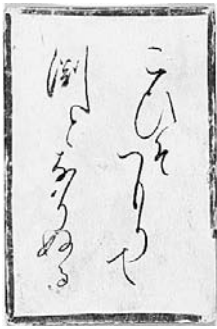 こひそつもりて
淵となりぬる